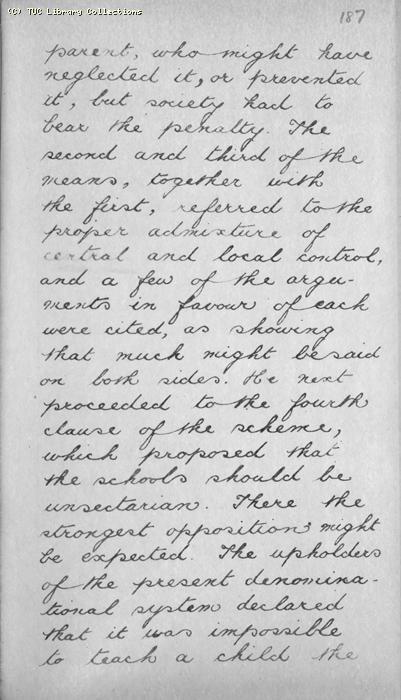 (C) TUC Library Collections
187
parent, who might have
neglected it, or prevented
it, but society had to
bear the penalty. The
second and third of the
means, together with
the first, referred to the
proper admixture of
central and local control,
and a few of the argu-
ments in favour of each
were cited, as showing
that much might be said
on both sides. He next
proceeded to the fourth
clause of the scheme,
which proposed that
the schools should be
unsectarian. There the
strongest opposition might
be expected. The upholders
of the present denomina-
tional system declared
that it was impossible
to teach a child the